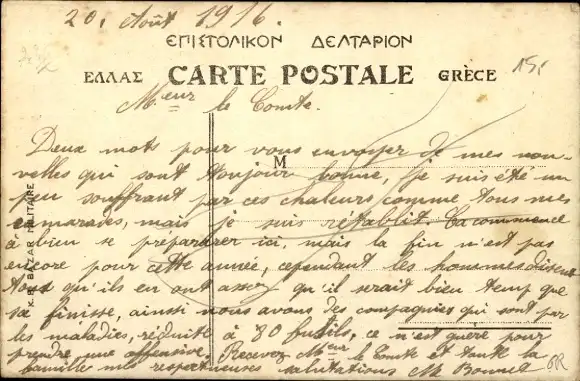 20. Août 1916.
ΕΠΙΣΤΟΛΙΚΟΝ ΔΕΛΤΑΡΙΟΝ
ΕΛΛΑΣ CARTE POSTALE GRÈCE
15.
Meur le Comte.
Deux mots pour vous envoyer de mes nou-
M
velles qui sont toujour bonne, je suis été un
peu souffrant par ces chaleurs comme tous mes
camarades, mais je suis rétablit Ca commence
à bien se preparérer ici, mais la fin n'est pas
encore pour cette année, cependant les hommes disent
tous qu'ils en ont assez qu'il serait bien temp que
sa finisse, ainsi nous avons des compagnies qui sont par
les maladies, réduite à 80 fusils, ce n'est guère pour
prendre une offensive. Recevez Meur le Comte et toute la
famille mes respectueuses salutations M Bonnet
BAZAR MILITAIRE